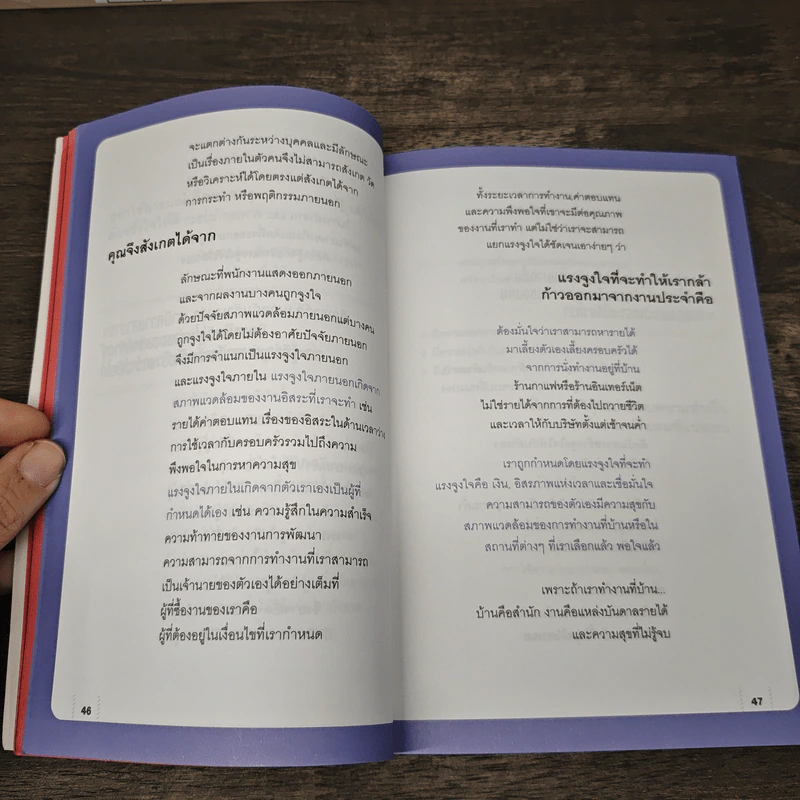 จะแตกต่างกันระหว่างบุคคลและมีลักษณะ
เป็นเรื่องภายในตัวคนจึงไม่สามารถสังเกต วัด
หรือวิเคราะห์ได้โดยตรงแต่สังเกตได้จาก
การกระทำ หรือพฤติกรรมภายนอก
คุณจึงสังเกตได้จาก
ลักษณะที่พนักงานแสดงออกภายนอก
และจากผลงานบางคนถูกจูงใจ
ด้วยปัจจัยสภาพแวดล้อมภายนอกแต่บางคน
ถูกจูงใจได้โดยไม่ต้องอาศัยปัจจัยภายนอก
จึงมีการจำแนกเป็นแรงจูงใจภายนอก
และแรงจูงใจภายใน แรงจูงใจภายนอกเกิดจาก
สภาพแวดล้อมของงานอิสระที่เราจะทำ เช่น
รายได้ค่าตอบแทน เรื่องของอิสระในด้านเวลาว่าง
การใช้เวลากับครอบครัวรวมไปถึงความ
พึงพอใจในการหาความสุข
แรงจูงใจภายในเกิดจากตัวเราเองเป็นผู้ที่
กำหนดได้เอง เช่น ความรู้สึกในความสำเร็จ
ความท้าทายของงานการพัฒนา
ความสามารถจากการทำงานที่เราสามารถ
เป็นเจ้านายของตัวเองได้อย่างเต็มที่
ผู้ที่ซื้องานของเราคือ
ผู้ที่ต้องอยู่ในเงื่อนไขที่เรากำหนด
46
ทั้งระยะเวลาการทำงาน,ค่าตอบแทน
และความพึงพอใจที่เขาจะมีต่อคุณภาพ
ของงานที่เราทำ แต่ไม่ใช่ว่าเราจะสามารถ
แยกแรงจูงใจได้ชัดเจนเอาง่ายๆ ว่า
แรงจูงใจที่จะทำให้เรากล้า
ก้าวออกมาจากงานประจำคือ
ต้องมั่นใจว่าเราสามารถหารายได้
มาเลี้ยงตัวเองเลี้ยงครอบครัวได้
จากการนั่งทำงานอยู่ที่บ้าน
ร้านกาแฟหรือร้านอินเทอร์เน็ต
ไม่ใช่รายได้จากการที่ต้องไปถวายชีวิต
และเวลาให้กับบริษัทตั้งแต่เช้าจนค่ำ
เราถูกกำหนดโดยแรงจูงใจที่จะทำ
แรงจูงใจคือ เงิน, อิสรภาพแห่งเวลาและเชื่อมั่นใจ
ความสามารถของตัวเองมีความสุขกับ
สภาพแวดล้อมของการทำงานที่บ้านหรือใน
สถานที่ต่างๆ ที่เราเลือกแล้ว พอใจแล้ว
เพราะถ้าเราทำงานที่บ้าน...
บ้านคือสำนัก งานคือแหล่งบันดาลรายได้
และความสุขที่ไม่รู้จบ
47